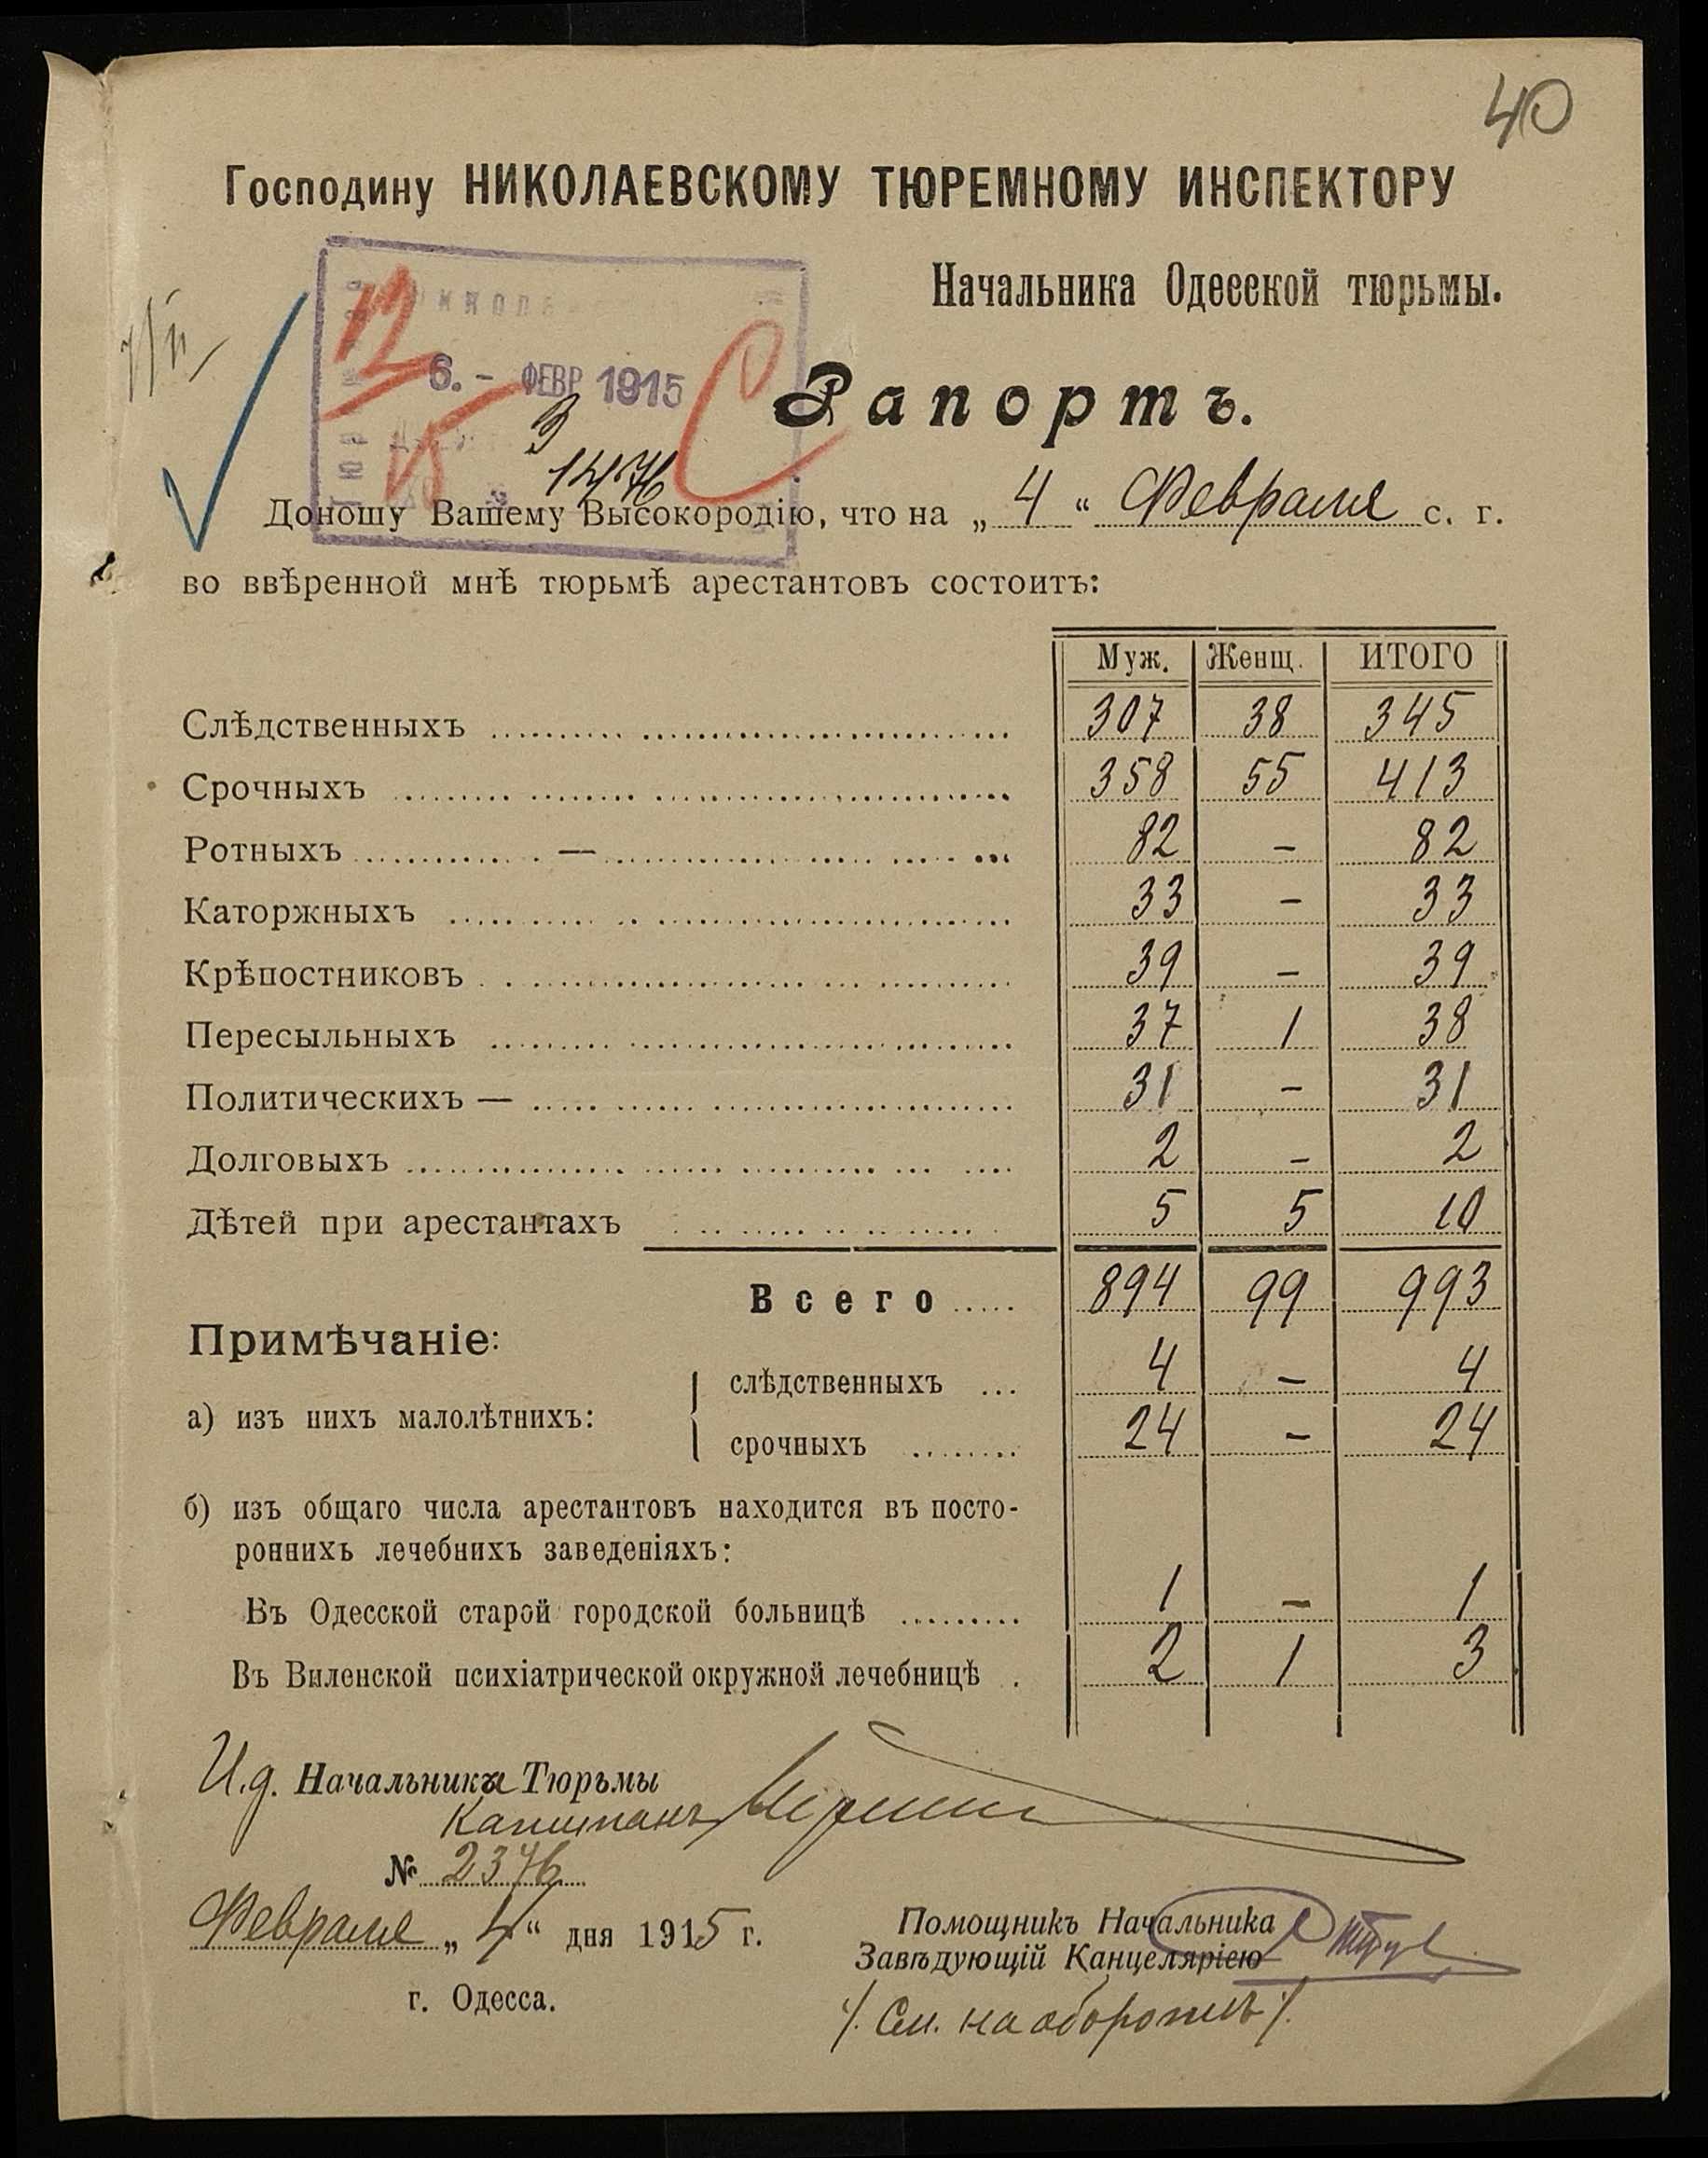 40
Господину НИКОЛАЕВСКОМУ ТЮРЕМНОМУ ИНСПЕКТОРУ
Начальника Одесской тюрьмы.
12
6. - ФЕВР 1915
Рапортъ.
3
1476
Доношу Вашему Высокородію, что на „ 4 “ Февраля с. г.
во ввѣренной мнѣ тюрьмѣ арестантовъ состоитъ:
Муж. Женщ. ИТОГО
Слѣдственныхъ 307 38 345
Срочныхъ 358 55 413
Ротныхъ — 82 - 82
Каторжныхъ 33 - 33
Крѣпостниковъ 39 - 39
Пересыльныхъ 37 1 38
Политическихъ — 31 - 31
Долговыхъ 2 - 2
Дѣтей при арестантахъ 5 5 10
Всего 894 99 993
Примѣчаніе:
а) изъ нихъ малолѣтнихъ:
слѣдственныхъ 4 - 4
срочныхъ 24 - 24
б) изъ общаго числа арестантовъ находится въ посто-
роннихъ лечебнихъ заведеніяхъ:
Въ Одесской старой городской больницѣ 1 - 1
Въ Виленской психіатрической окружной лечебницѣ 2 1 3
И.д. Начальника Тюрьмы
Капитанъ
№ 2376
Февраля „ 4 “ дня 1915 г.
г. Одесса.
Помощникъ Начальника
Завѣдующій Канцеляріею
/. См. на оборотѣ /.